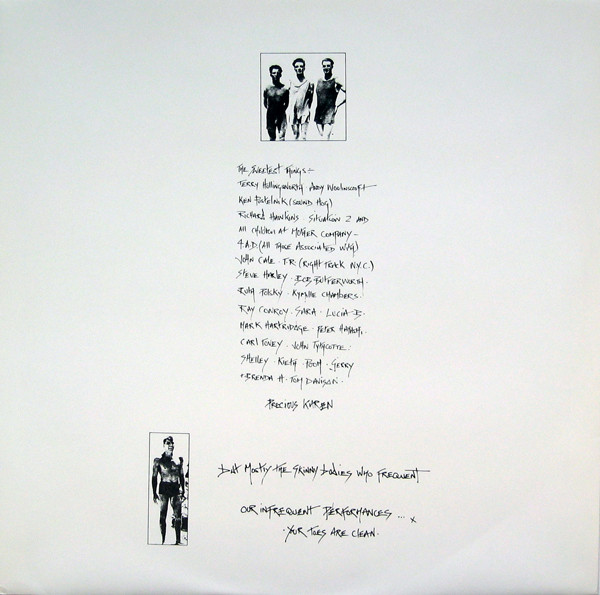 THE SWEETEST THINGS:-
TERRY HOLLINGSWORTH ANDY WOOLNSCROFT
KEN (SOUND HOG)
RICHARD HAWKINS · SITUATION 2 AND
All CHILDREN AT MOTHER COMPANY -
4.A.D. (All THOSE ASSOCIATED WITH)
JOHN CALE · F.R. (RIGHT TRACK N.Y.C.)
STEVE HARLEY · BOB BUTTERWORTH ·
RUTH POLSKY · CHAMBERS ·
RAY CONROY · SARA · LUCIA-B ·
MARK HARTRIDGE · PETER
CARL TONEY · JOHN
SHELLEY · KIERY · POOH · GERRY
· BRENDA H · TOM DAVISON ·
PRECIOUS KAREN
but Mostly the SKINNY bodies WHO FREQUENT
OUR INFREQUENT PERFORMANCES ... x
· YOUR TOES ARE CLEAN ·